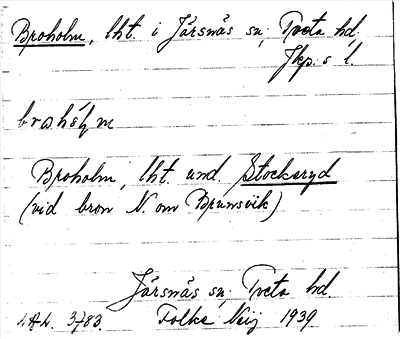 Broholm, lht. i Järsnäs sn, Tveta hd.
Jkp. s l.
Broholm, lht. und. Stocksryd
(vid bron N. om Brunsvik)
Järsnäs sn, Tveta hd.
3783. Folke Neij 1939.